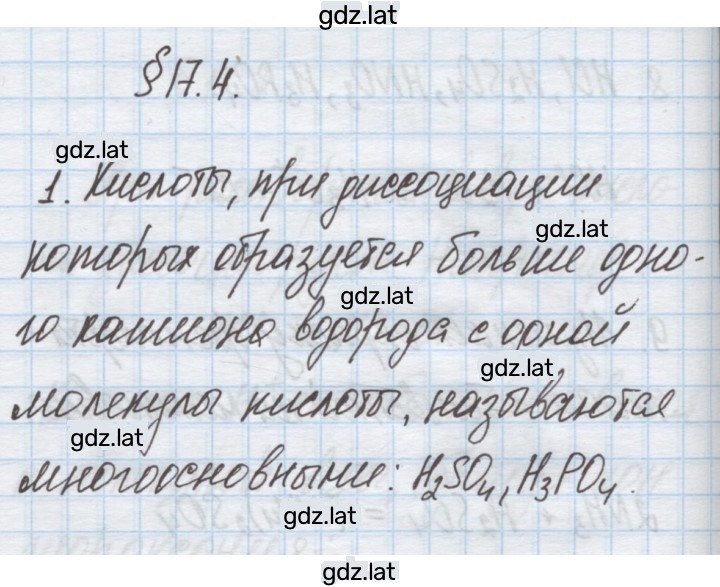 gdz.lat
§17.4.
gdz.lat
1. Кислоты, при диссоциации
gdz.lat
которых образуется больше одно-
gdz.lat
го катиона водорода с одной
gdz.lat
молекулы кислоты, называются
gdz.lat
многоосновными: H₂SO₄, H₃PO₄.
gdz.lat
gdz.lat